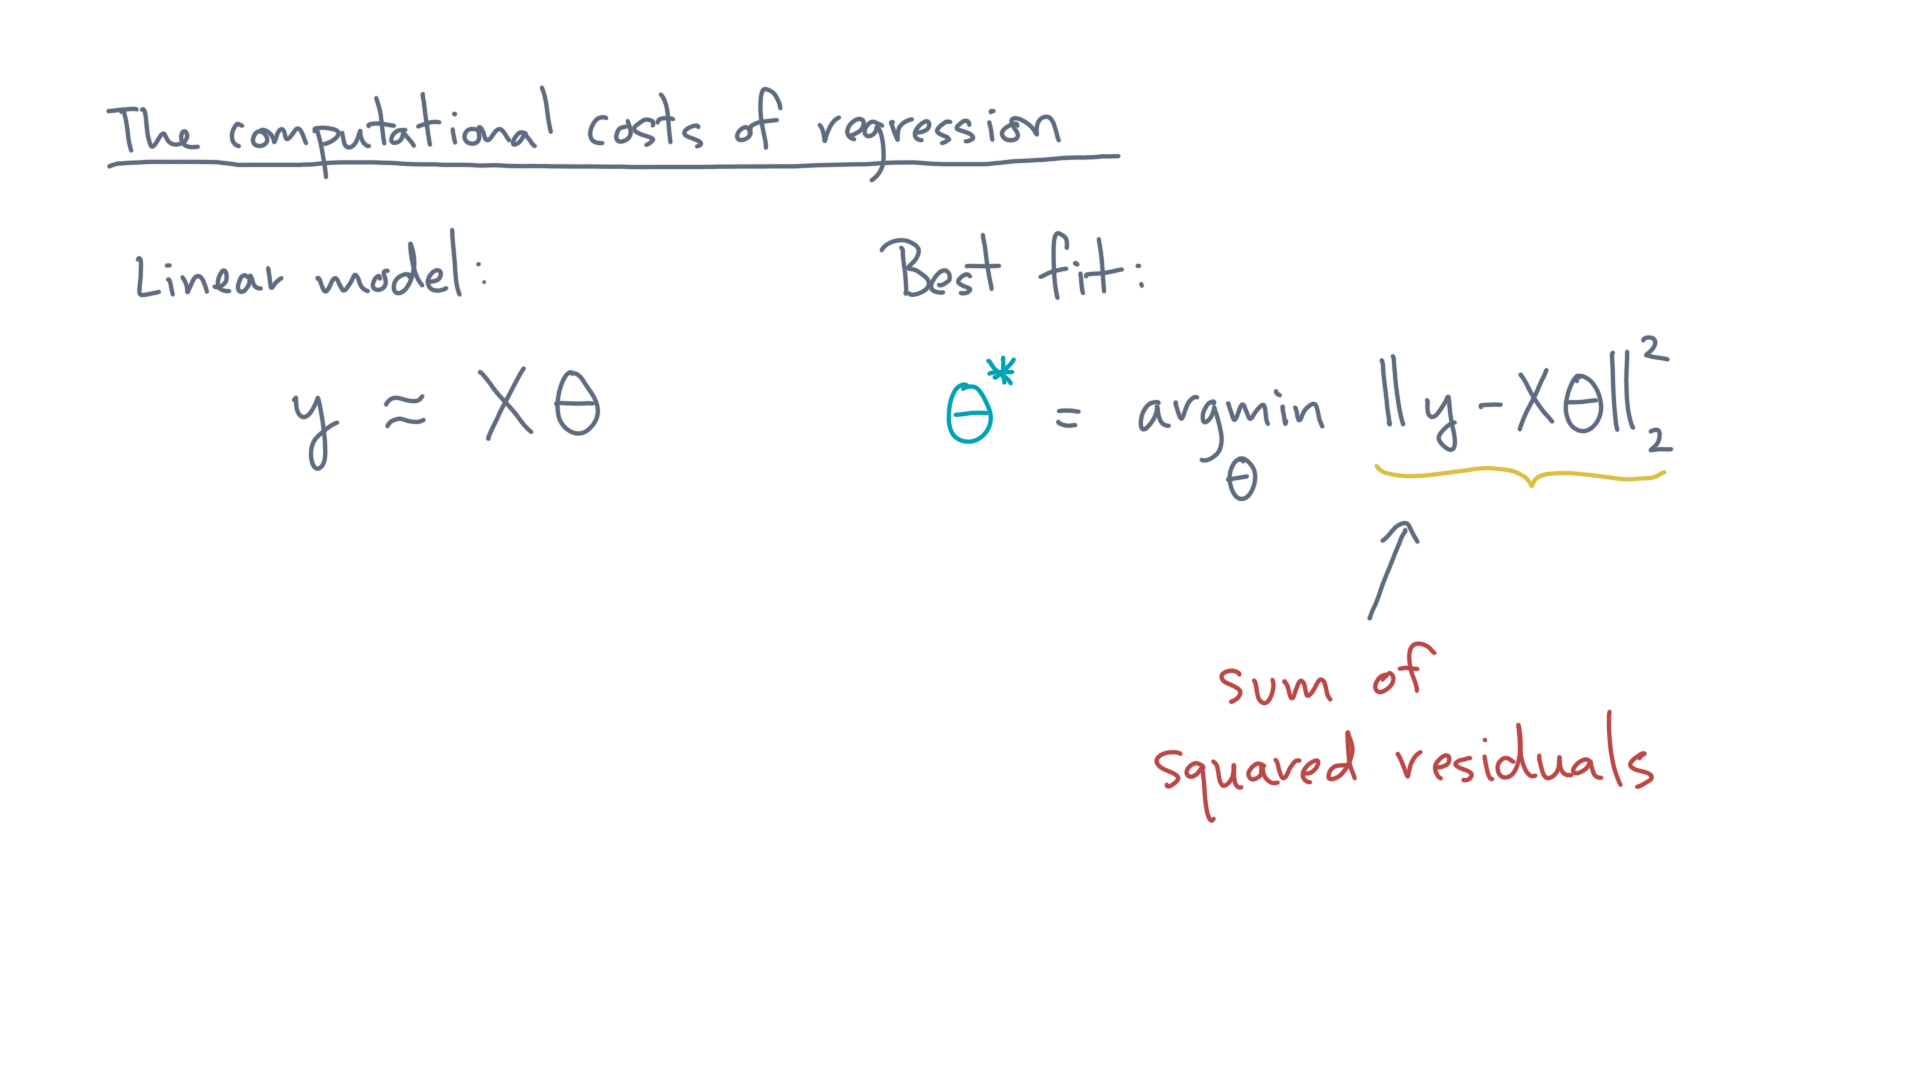 The computational costs of regression
Linear model:
y ≈ Xθ
Best fit:
θ* = argmin ‖y - Xθ‖₂²
θ
sum of
squared residuals